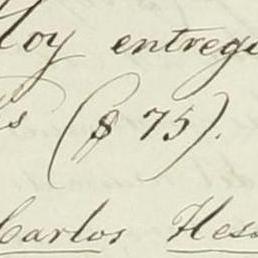 Hoy entreg
s ($ 75).
Carlos Hess